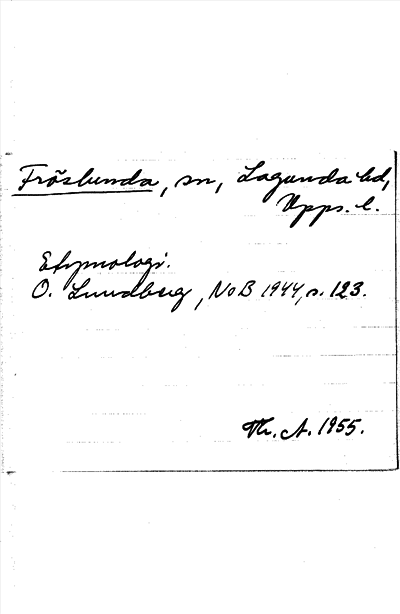 Fröslunda, sn, Lagunda hd,
Upps. l.
Etymologi.
O. Lundberg, NoB 1944, s. 123.
Th. A. 1955.